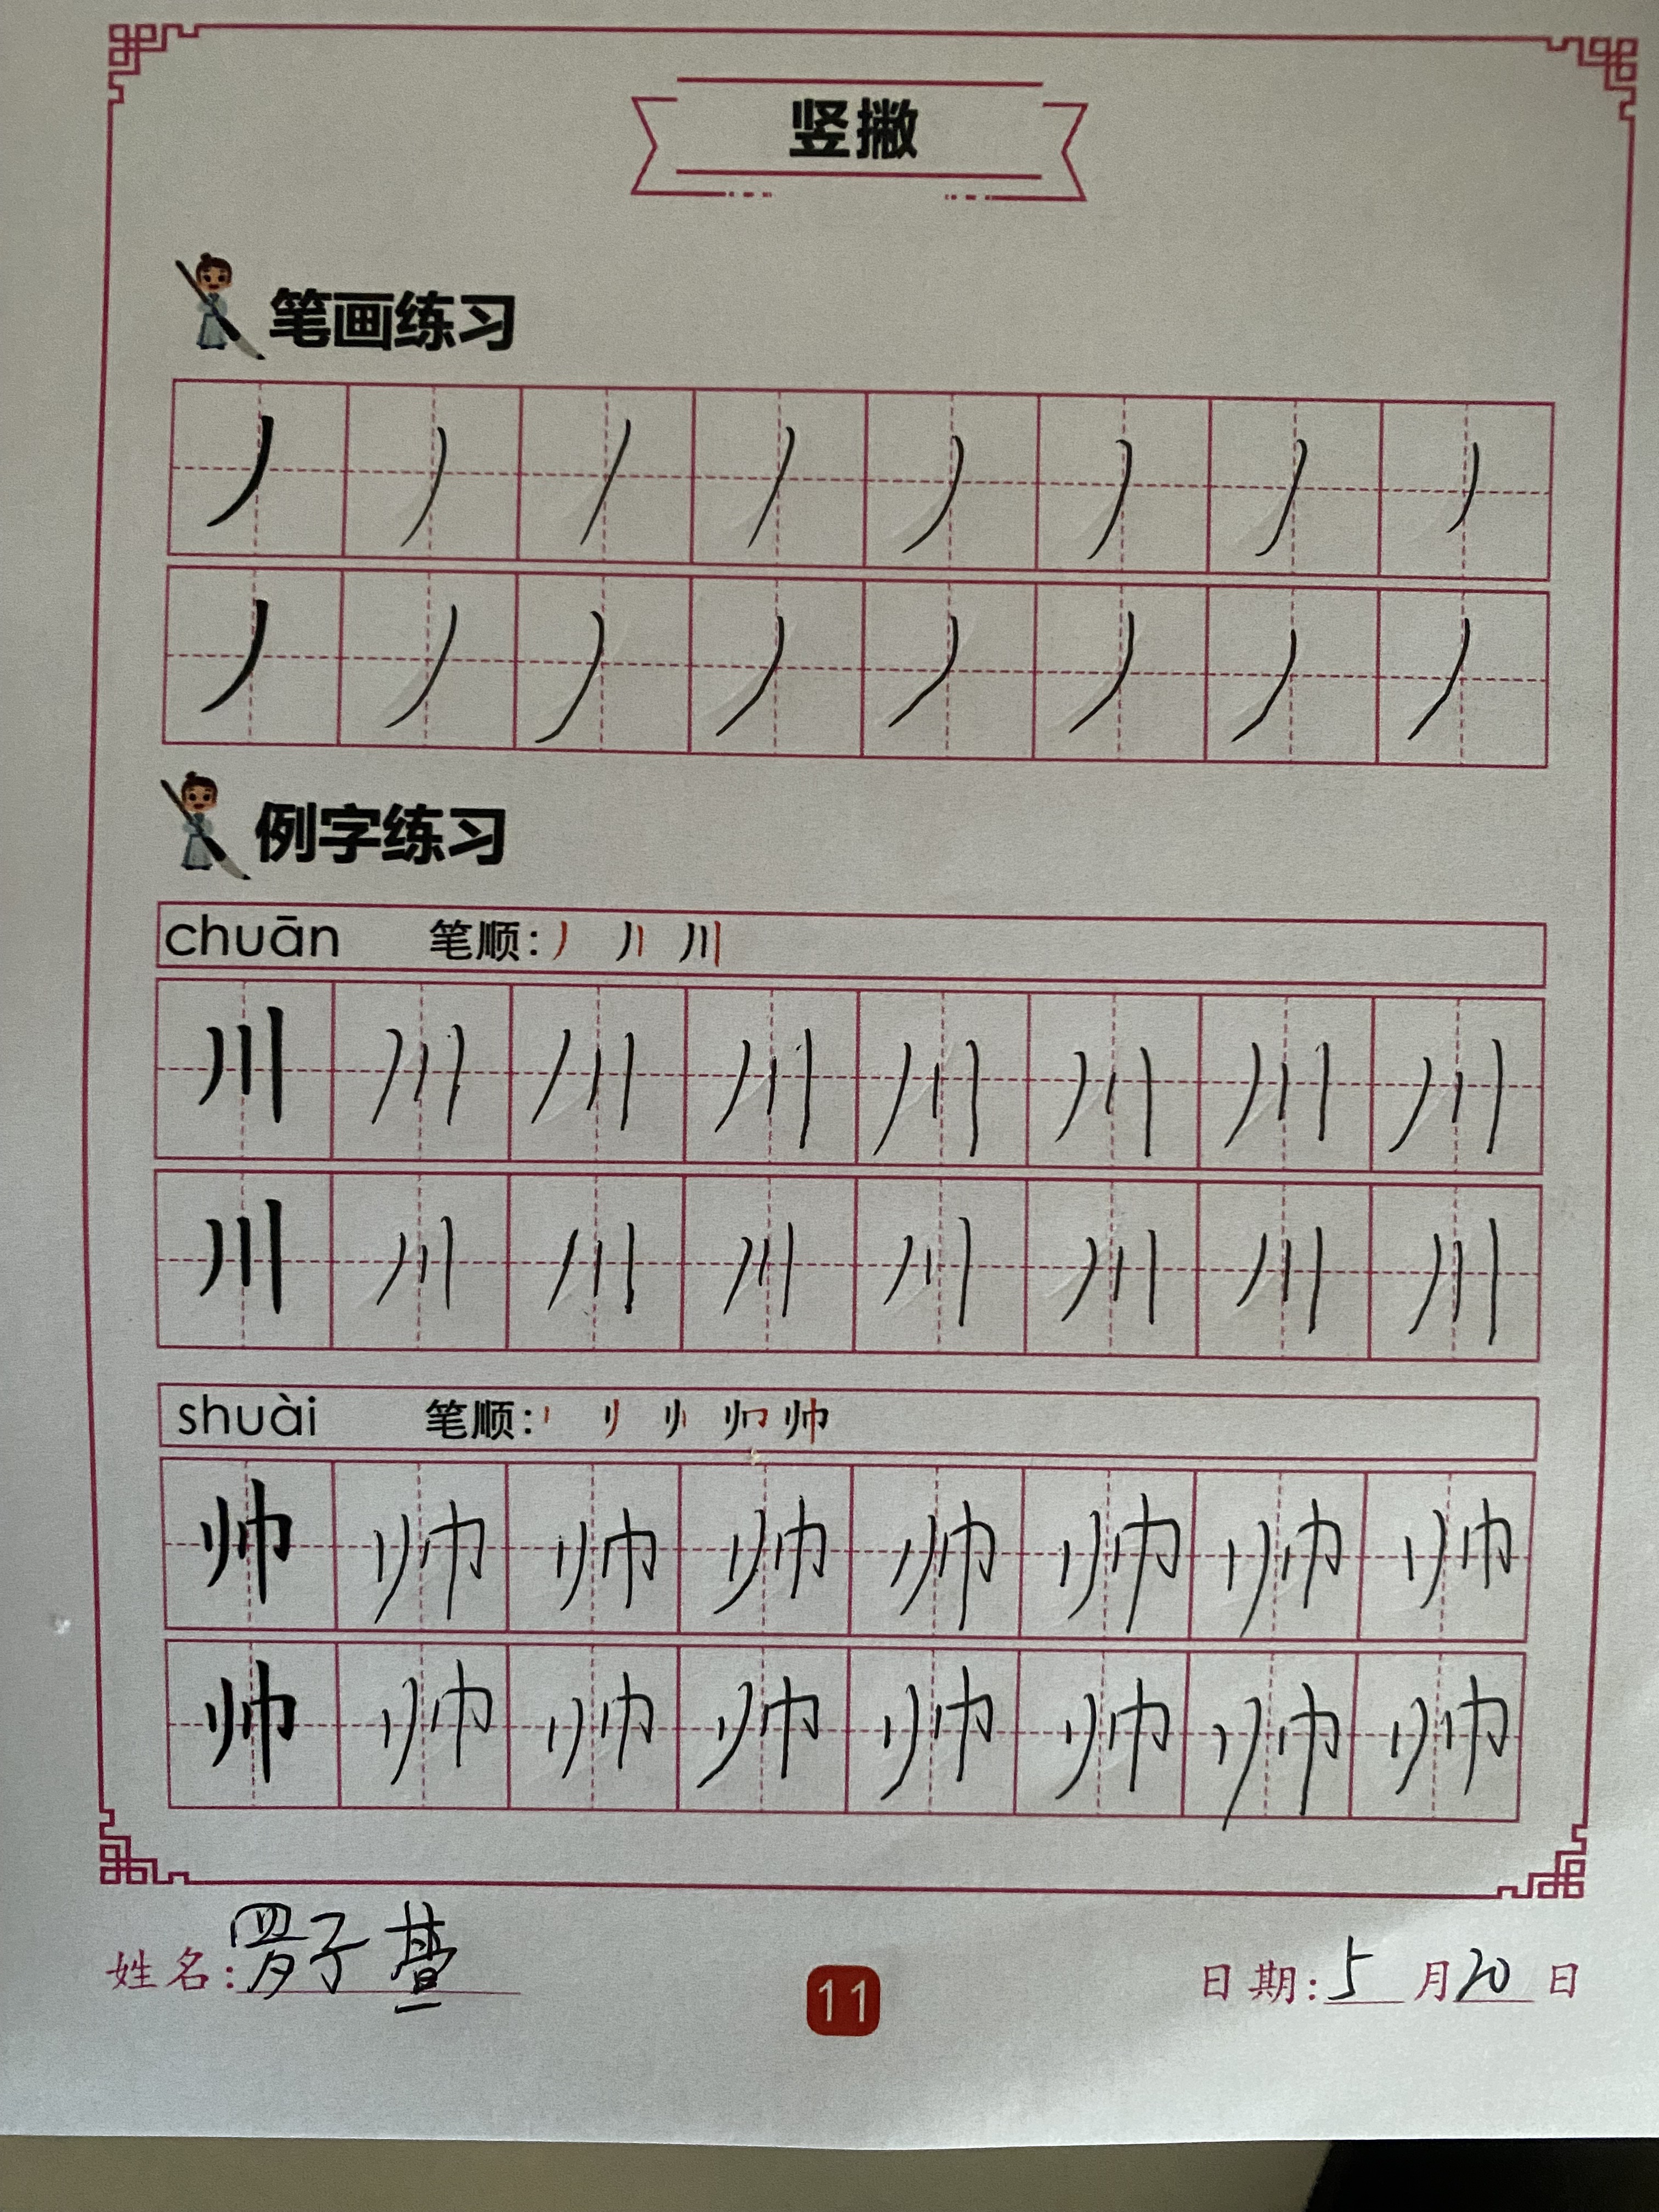 竖撇
笔画练习
丿 丿 丿 丿 丿 丿 丿 丿
丿 丿 丿 丿 丿 丿 丿 丿
例字练习
chuān 笔顺: 丿 丿丨 川
川 川 川 川 川 川 川 川
川 川 川 川 川 川 川 川
shuài 笔顺: 帅
帅 帅 帅 帅 帅 帅 帅 帅
帅 帅 帅 帅 帅 帅 帅 帅
姓名: 罗子萱
11
日期: 5 月 20 日